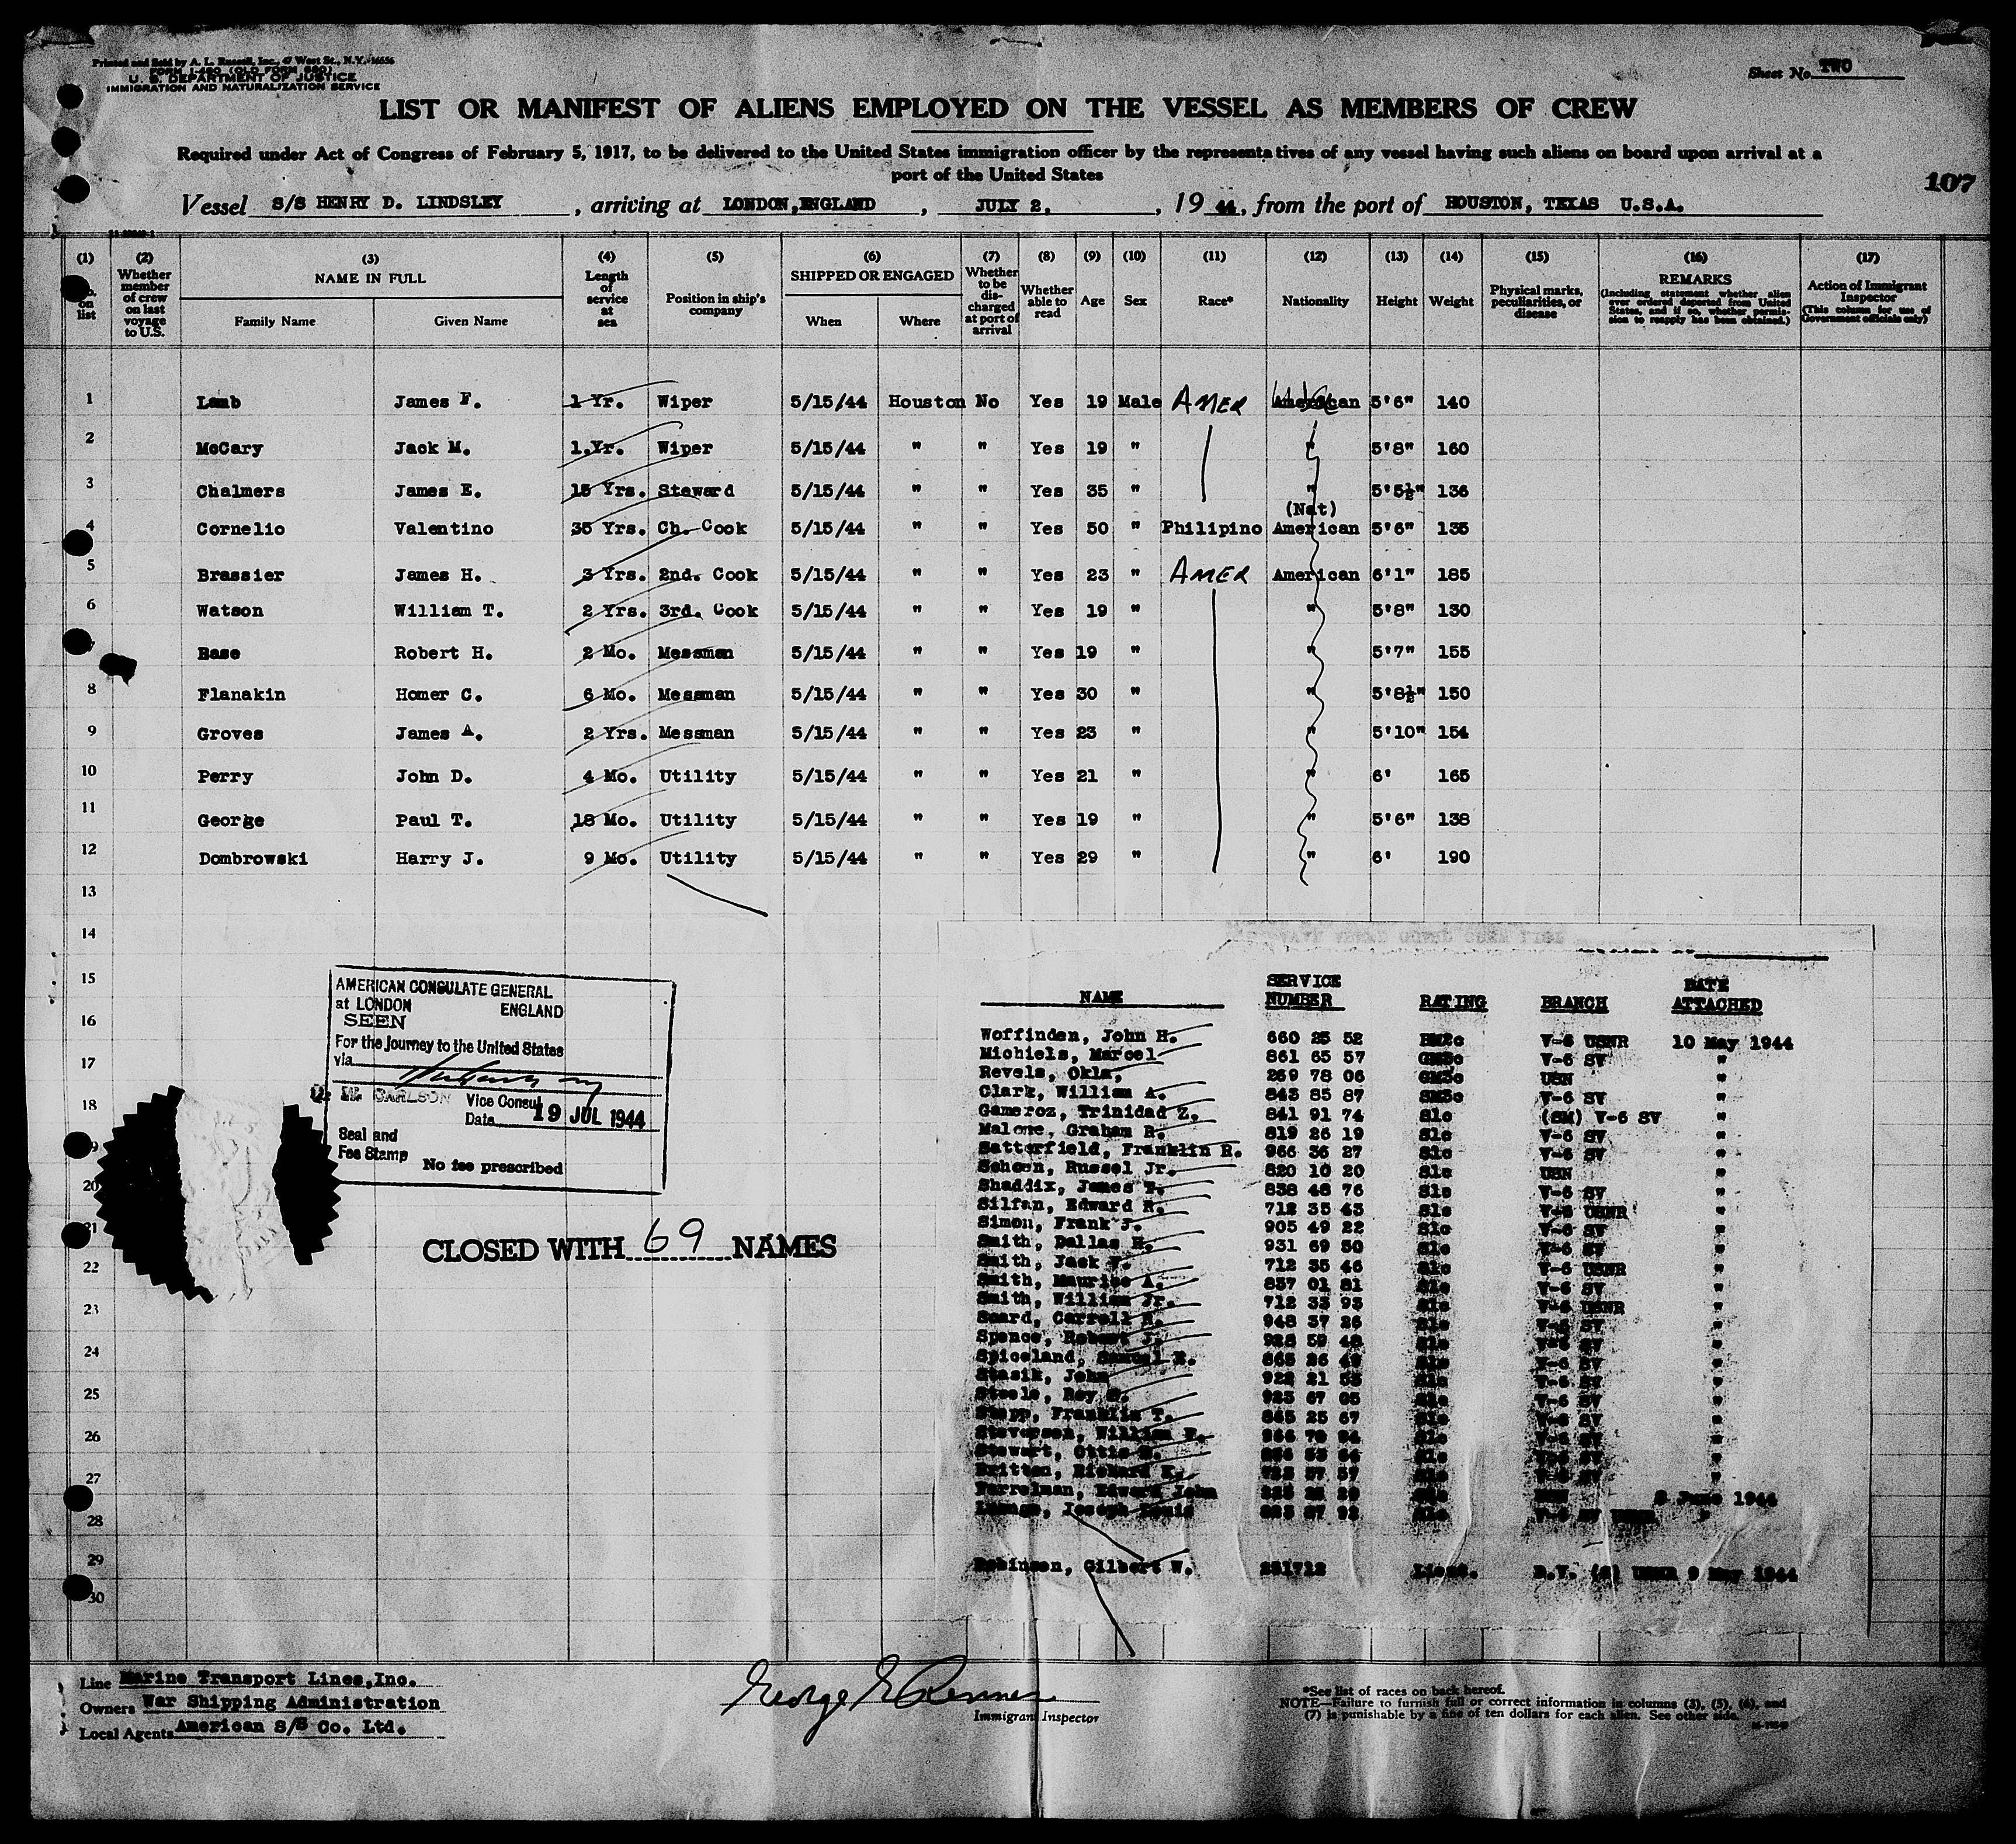 Printed and Sold by A. L. Russell, Inc., 47 West St., N.Y.
FORM I-480 (OLD FORM 680)
U. S. DEPARTMENT OF JUSTICE
IMMIGRATION AND NATURALIZATION SERVICE
Sheet No. TWO
LIST OR MANIFEST OF ALIENS EMPLOYED ON THE VESSEL AS MEMBERS OF CREW
Required under Act of Congress of February 5, 1917, to be delivered to the United States immigration officer by the representatives of any vessel having such aliens on board upon arrival at a
port of the United States
107
Vessel S/S HENRY D. LINDSLEY, arriving at LONDON, ENGLAND, JULY 2, 1944, from the port of HOUSTON, TEXAS U.S.A.
(1) (2) (3) (4) (5) (6) (7) (8) (9) (10) (11) (12) (13) (14) (15) (16) (17)
No. on list Whether member of crew on last voyage to U.S. NAME IN FULL Family Name Given Name Length of service at sea Position in ship's company SHIPPED OR ENGAGED When Where Whether to be discharged at port of arrival Whether able to read Age Sex Race* Nationality Height Weight Physical marks, peculiarities, or disease REMARKS (Including statement whether alien ever ordered deported from United States, and if so, whether permission to reapply has been obtained.) Action of Immigrant Inspector (This column for use of Government officials only)
1 Lamb James F. 1 Yr. Wiper 5/15/44 Houston No Yes 19 Male AMER American 5'6" 140
2 McCary Jack M. 1 Yr. Wiper 5/15/44 " " Yes 19 " " 5'8" 160
3 Chalmers James E. 15 Yrs. Steward 5/15/44 " " Yes 35 " " 5'5½" 136
(Nat)
4 Cornelio Valentino 35 Yrs. Ch. Cook 5/15/44 " " Yes 50 " Philipino American 5'6" 135
5 Brassier James H. 3 Yrs. 2nd. Cook 5/15/44 " " Yes 23 " AMER American 6'1" 185
6 Watson William T. 2 Yrs. 3rd. Cook 5/15/44 " " Yes 19 " " 5'8" 130
7 Base Robert H. 2 Mo. Messman 5/15/44 " " Yes 19 " " 5'7" 155
8 Flanakin Homer C. 6 Mo. Messman 5/15/44 " " Yes 30 " " 5'8½" 150
9 Groves James A. 2 Yrs. Messman 5/15/44 " " Yes 23 " " 5'10" 154
10 Perry John D. 4 Mo. Utility 5/15/44 " " Yes 21 " " 6' 165
11 George Paul T. 18 Mo. Utility 5/15/44 " " Yes 19 " " 5'6" 138
12 Dombrowski Harry J. 9 Mo. Utility 5/15/44 " " Yes 29 " " 6' 190
13
14
15
16
17
18
19
20
21
22
23
24
25
26
27
28
29
30
AMERICAN CONSULATE GENERAL
at LONDON ENGLAND
SEEN
For the journey to the United States
via
CARLSON Vice Consul
Date 19 JUL 1944
Seal and
Fee Stamp No fee prescribed
CLOSED WITH 69 NAMES
NAME SERVICE NUMBER RATING BRANCH DATE ATTACHED
Woffinden, John H. 660 25 52 BM2c V-6 USNR 10 May 1944
Michiels, Marcel 861 65 57 GM3c V-6 SV "
Revels, Okla, 269 78 06 GM3c USN "
Clark, William A. 843 85 87 SM3c V-6 SV "
Gameroz, Trinidad Z. 841 91 74 S1c (SM) V-6 SV "
Malone, Graham R. 819 26 19 S1c V-6 SV "
Satterfield, Franklin R. 966 36 27 S1c V-6 SV "
Scheen, Russel Jr. 820 10 20 S1c USN "
Shaddix, James T. 838 48 76 S1c V-6 SV "
Silfan, Edward R. 712 35 43 S1c V-6 USNR "
Simon, Frank J. 905 49 22 S1c V-6 SV "
Smith, Dallas H. 931 69 50 S1c V-6 SV "
Smith, Jack 712 35 46 S1c V-6 USNR "
Smith, Maurice A. 837 01 81 S1c V-6 SV "
Smith, William Jr. 712 33 93 S1c V-6 USNR "
Soard, Carroll 948 37 26 S1c V-6 SV "
Spence, Robert J. 59 48 S1c V-6 SV "
Spiceland, Samuel 865 26 S1c V-6 SV "
Stasik, John 922 21 S1c V-6 SV "
Steele, Roy 923 67 05 S1c V-6 SV "
Stepp, Franklin T. 865 25 67 S1c V-6 SV "
Steverson, William S1c V-6 SV "
Stewart, Ottis S1c V-6 SV "
Britton, Richard S1c V-6 SV "
Edward John June 1944
Joseph Louis V-6 SV
Robinson, Gilbert W. 251712 Lieut. USNR 9 May 1944
Line Marine Transport Lines, Inc.
Owners War Shipping Administration
Local Agents American S/S Co. Ltd.
George E Renner
Immigrant Inspector
*See list of races on back hereof.
NOTE—Failure to furnish full or correct information in columns (3), (5), (6), and
(7) is punishable by a fine of ten dollars for each alien. See other side.